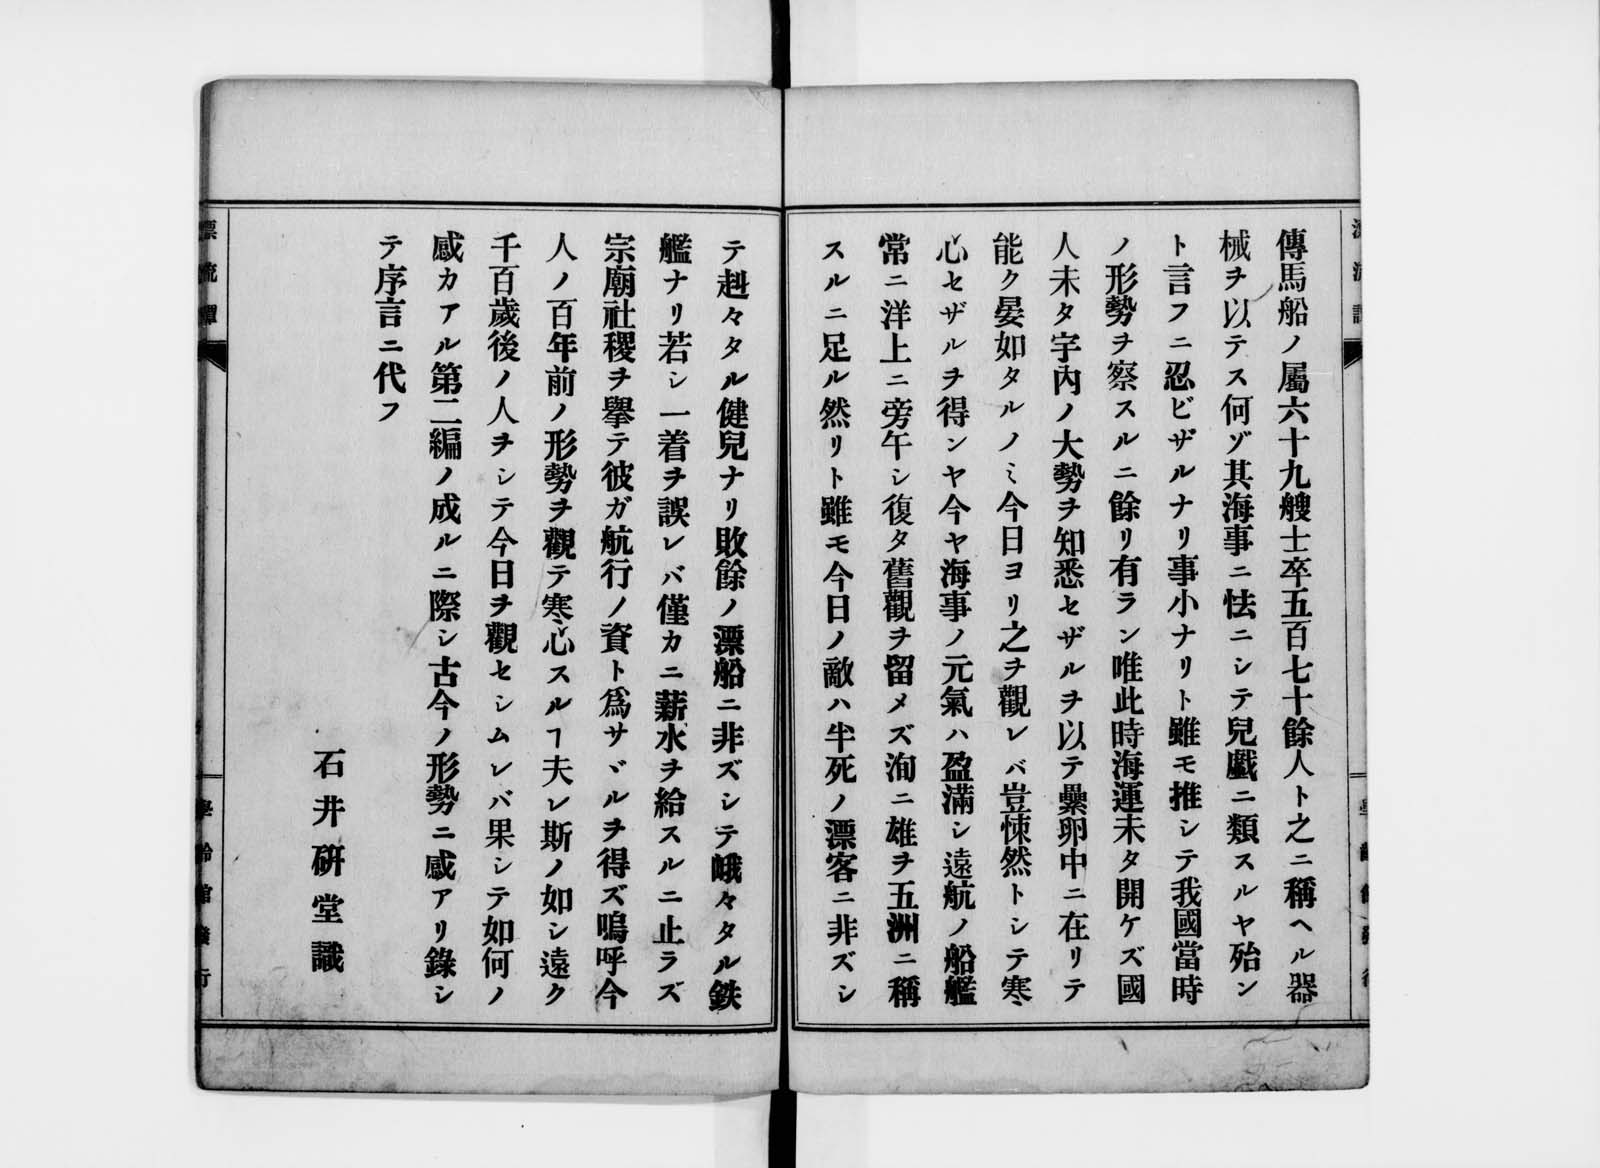 傳馬船ノ屬六十九艘士卒五百七十餘人ト之ニ稱ヘル器
械ヲ以テス何ゾ其海事ニ怯ニシテ兒戯ニ類スルヤ殆ン
ト言フニ忍ビザルナリ事小ナリト雖モ推シテ我國當時
ノ形勢ヲ察スルニ餘リ有ラン唯此時海運未タ開ケズ國
人未タ宇内ノ大勢ヲ知悉セザルヲ以テ纍卵中ニ在リテ
能ク晏如タルノミ今日ヨリ之ヲ觀レバ豈悚然トシテ寒
心セザルヲ得ンヤ今ヤ海事ノ元氣ハ盈滿シ遠航ノ船艦
常ニ洋上ニ旁午シ復タ舊觀ヲ留メズ洵ニ雄ヲ五洲ニ稱
スルニ足ル然リト雖モ今日ノ敵ハ半死ノ漂客ニ非ズシ
テ赳々タル健兒ナリ敗餘ノ漂船ニ非ズシテ峨々タル鉄
艦ナリ若シ一着ヲ誤レバ僅カニ薪水ヲ給スルニ止ラズ
宗廟社稷ヲ擧テ彼ガ航行ノ資ト爲サヾルヲ得ズ嗚呼今
人ノ百年前ノ形勢ヲ觀テ寒心スルヿ夫レ斯ノ如シ遠ク
千百歲後ノ人ヲシテ今日ヲ觀セシムレバ果シテ如何ノ
感カアル第二編ノ成ルニ際シ古今ノ形勢ニ感アリ錄シ
テ序言ニ代フ
石井硏堂識
漂流譚
學齡館發行